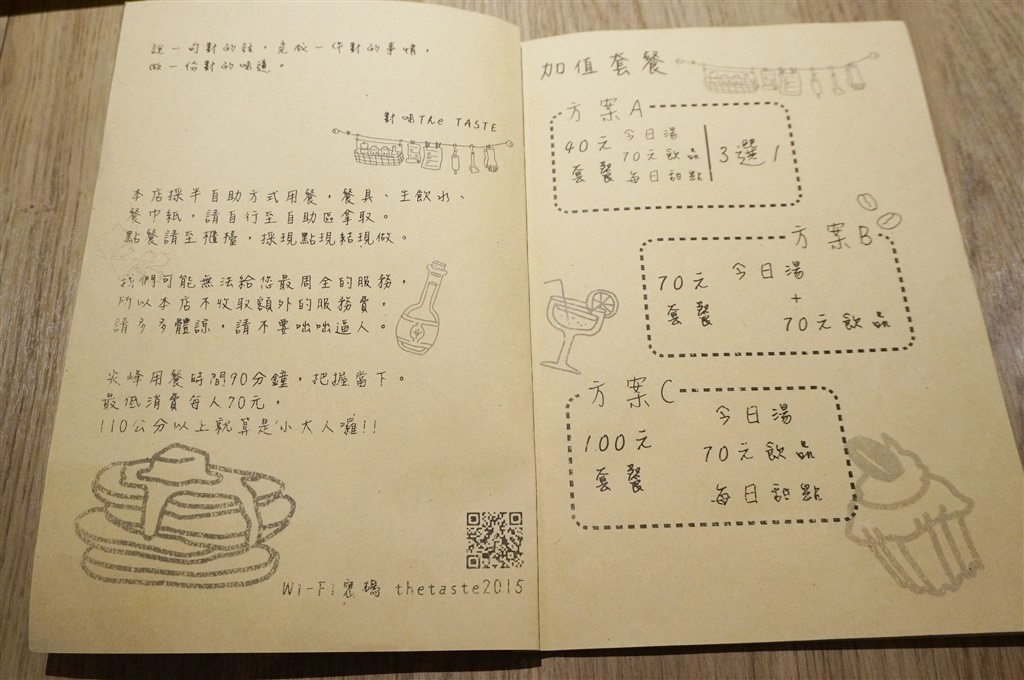 說一句對的話，完成一件對的事情，
做一份對的味道。
對味The TASTE
本店採半自助方式用餐，餐具、生飲水、
餐巾紙，請自行至自助區拿取。
點餐請至櫃檯，採現點現結現做。
我們可能無法給您最周全的服務，
所以本店不收取額外的服務費，
請多多體諒，請不要咄咄逼人。
尖峰用餐時間90分鐘，把握當下。
最低消費每人70元，
110公分以上就算是小大人囉!!
Wi-Fi密碼 thetaste2015
加值套餐
方案A
40元
套餐
今日湯
70元飲品
每日甜點
3選1
方案B
70元
套餐
今日湯
+
70元飲品
方案C
100元
套餐
今日湯
70元飲品
每日甜點